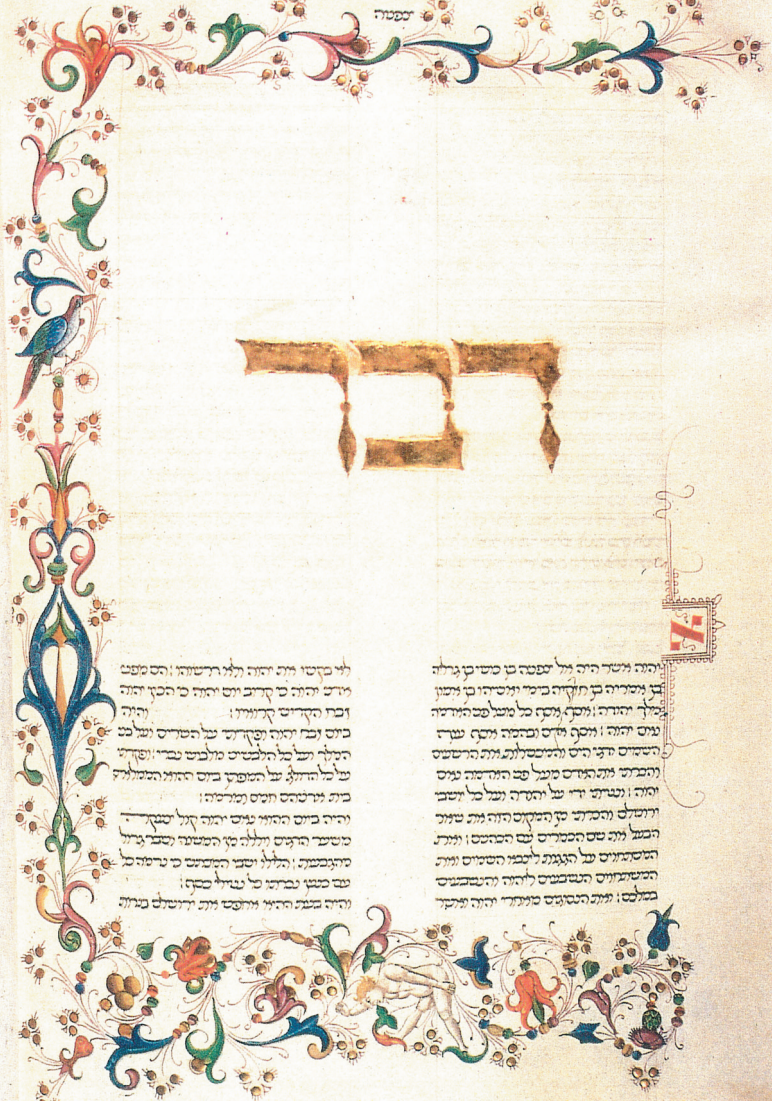 צפניה
דבר
א
יהוה אשר היה אל צפניה בן כושי בן גדליה
בן אמריה בן חזקיה בימי יאשיהו בן אמון
מלך יהודה: אסף אסף כל מעל פני האדמה
נאם יהוה: אסף אדם ובהמה אסף עוף
השמים ודגי הים והמכשלות את הרשעים
והכרתי את האדם מעל פני האדמה נאם
יהוה: ונטיתי ידי על יהודה ועל כל יושבי
ירושלם והכרתי מן המקום הזה את שאר
הבעל את שם הכמרים עם הכהנים: ואת
המשתחוים על הגגות לצבא השמים ואת
המשתחוים הנשבעים ליהוה והנשבעים
במלכם: ואת הנסוגים מאחרי יהוה ואשר
לא בקשו את יהוה ולא דרשוהו: הס מפני
אדני יהוה כי קרוב יום יהוה כי הכין יהוה
זבח הקדיש קרואיו: והיה
ביום זבח יהוה ופקדתי על השרים ועל בני
המלך ועל כל הלבשים מלבוש נכרי: ופקדתי
על כל הדולג על המפתן ביום ההוא הממלאים
בית אדניהם חמס ומרמה:
והיה ביום ההוא נאם יהוה קול צעקה
משער הדגים ויללה מן המשנה ושבר גדול
מהגבעות: הלילו ישבי המכתש כי נדמה כל
עם כנען נכרתו כל נטילי כסף:
והיה בעת ההיא אחפש את ירושלם בנרות